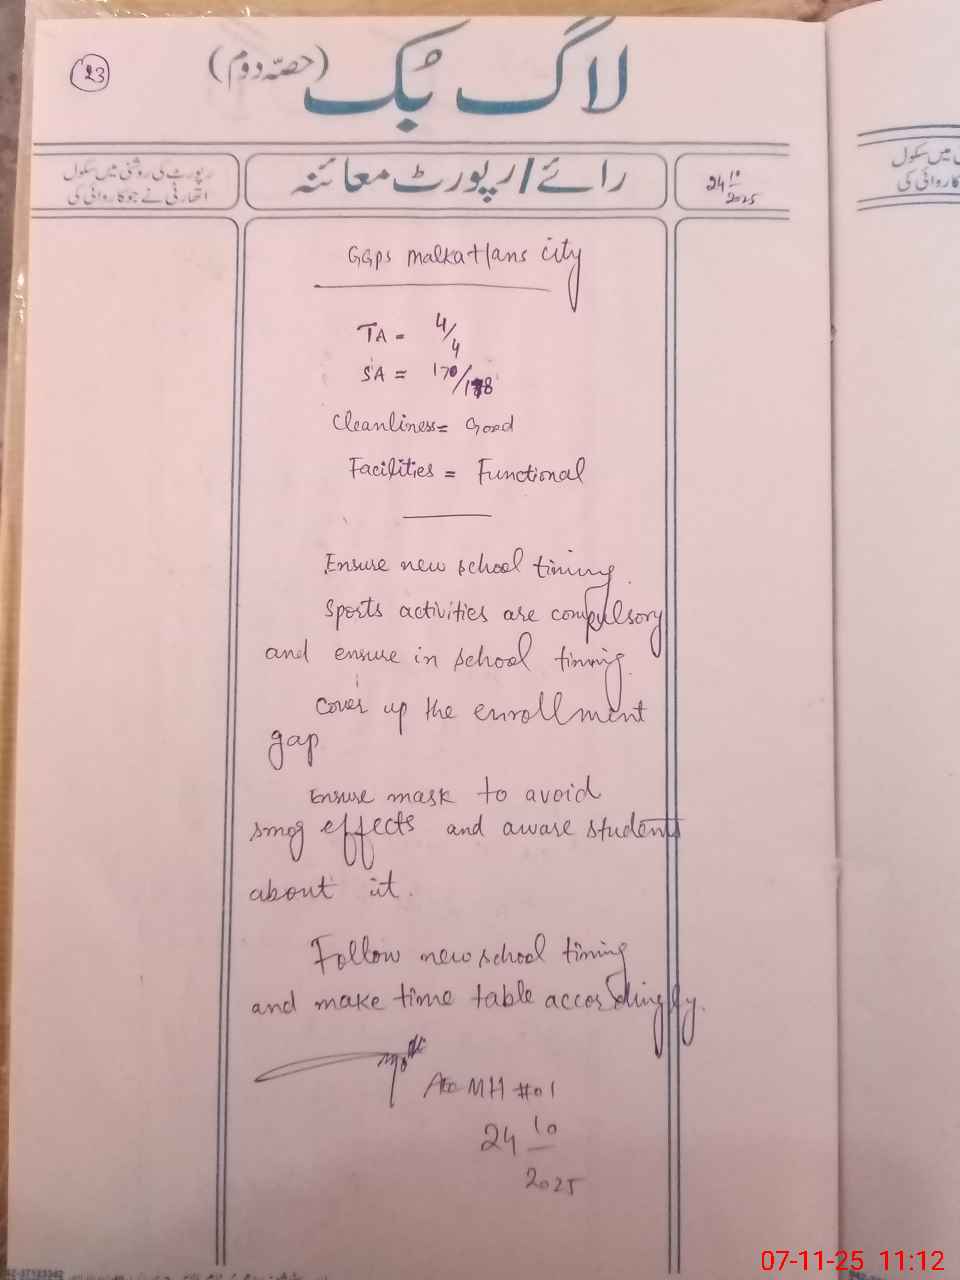 23
لاگ بُک (حصّہ دوم)
24 10/2025
رائے/رپورٹ معائنہ
رپورٹ کی روشنی میں سکول
اتھارٹی نے جو کاروائی کی
GGPS malkathans city
TA = 4/4
SA = 170/178
Cleanliness = Good
Facilities = Functional
Ensure new school timing.
Sports activities are compulsory
and ensure in school timing.
Cover up the enrollment
gap
Ensure mask to avoid
smog effects and aware students
about it.
Follow new school timing
and make time table accordingly.
MH #01
24 10/2025
میں سکول
07-11-25 11:12